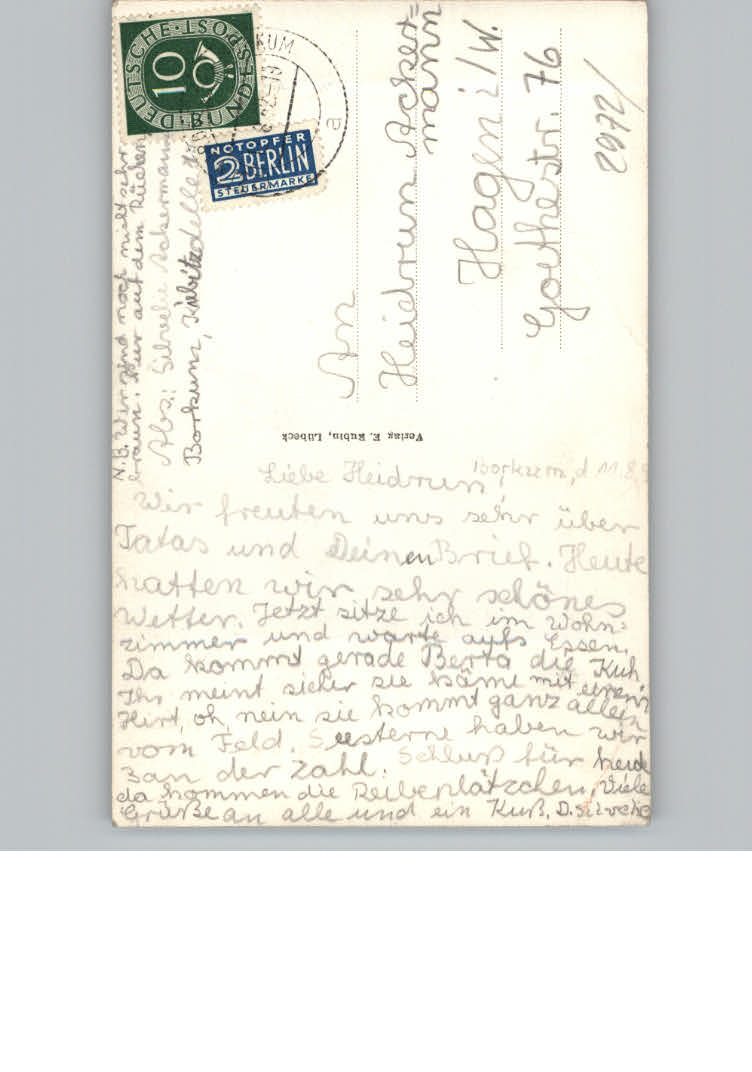 Borkum, d 11.8.5
Liebe Heidrun,
Wir freuten uns sehr über
Tatas und Deinen Brief. Heute
hatten wir sehr schönes
Wetter. Jetzt sitze ich im Wohn=
zimmer und warte aufs Essen.
Da kommt gerade Berta die Kuh
Ihr meint sicher sie käme mit einem
Hirt, oh, nein sie kommt ganz allein
vom Feld. Seesterne haben wir
3 an der Zahl. Schluß für heute
da kommen die Reibeplätzchen, Viele
Grüße an alle und ein Kuß. D. Silveli
N.B. Wir sind noch nicht sehr
braun. Nur auf dem Rücken
Abs.: Ackermann
Borkum, Kiebitzdelle
An
Heidrun Acker=
mann
Hagen i/W.
Goethestr. 76
2972/
Verlag E. Rubin, Lübeck
DEUTSCHE BUNDESPOST
10
NOTOPFER
2 BERLIN
STEUERMARKE
KUM
a